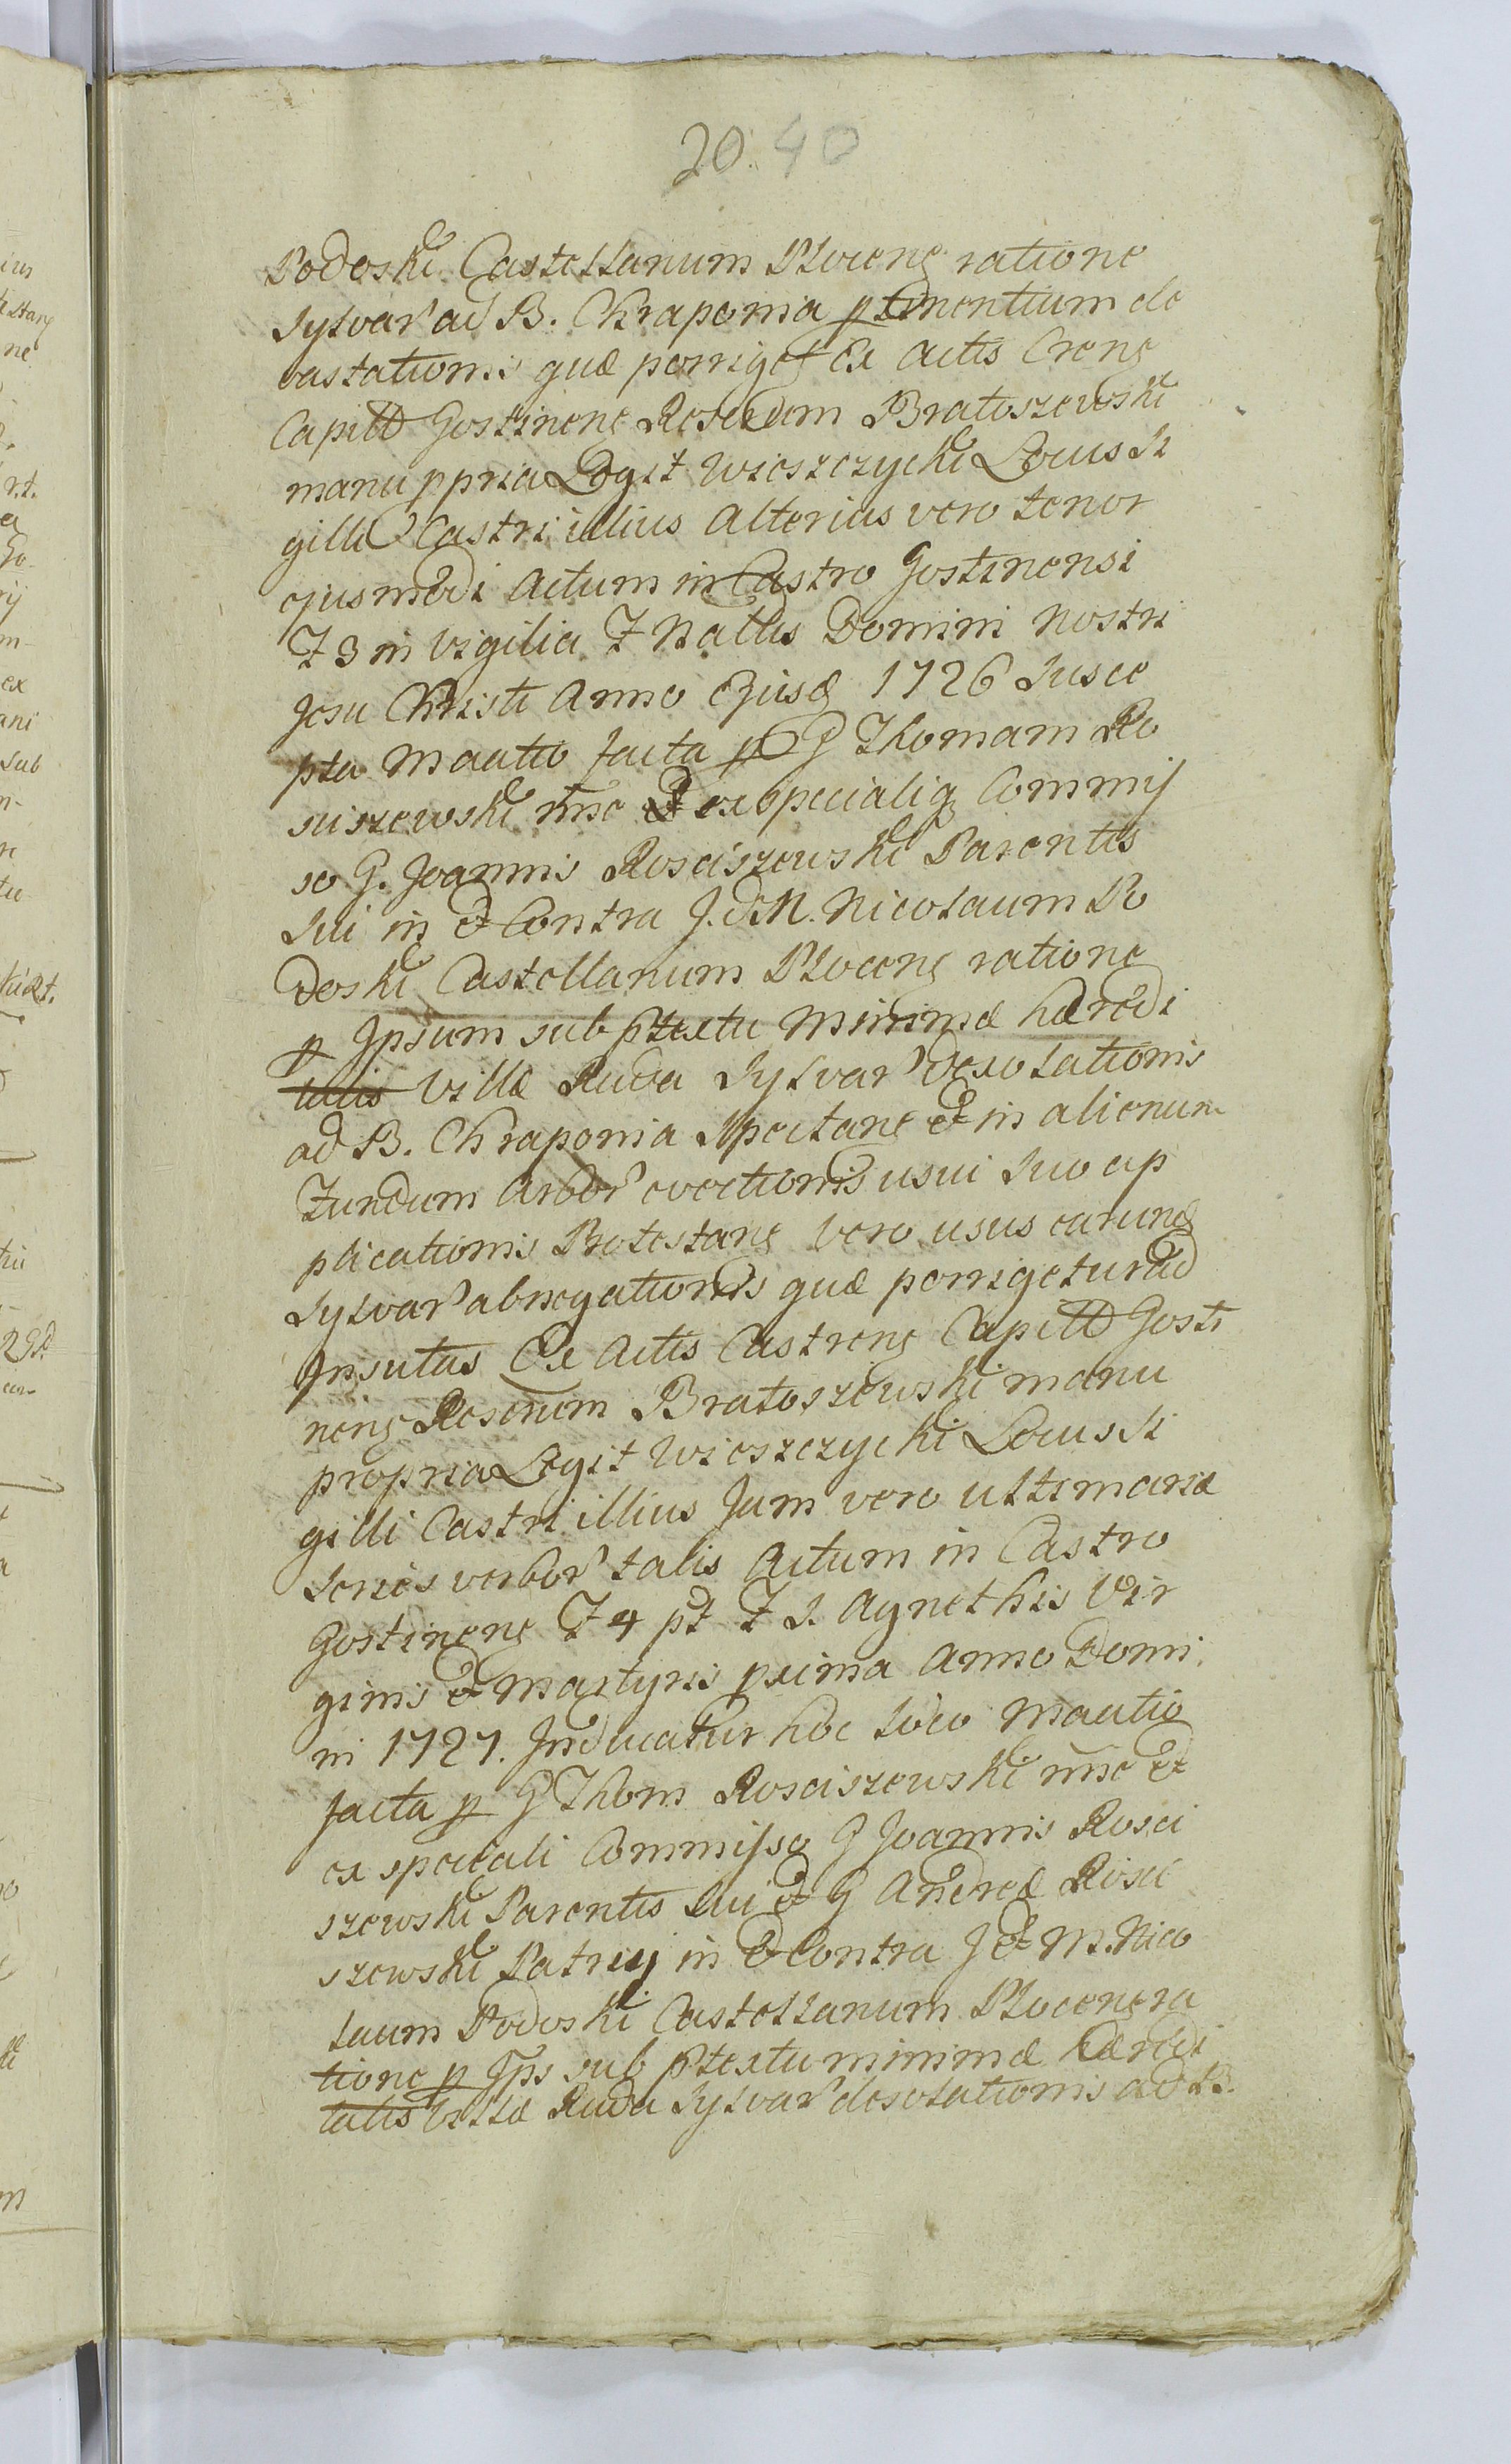 20. 40
Podoski Castellanum Plocens ratione
Sylvar ad B. Chraponia ptinentium de
vastationis quæ porriget Ex Actis Crens
Capitt Gostinens Rescium Bratoszewski
manu ppria Legit Wieszczycki Locus Si
gilli Castri illius Alterius vero tenor
ejusmodi Actum in Castro Gostinensi
F 3 in Vigilia F Natlis Domini Nostri
Jesu Christi Anno Ejusd 1726 Susce
pta Maatio facta p G Thomam Ro
sciszewski nnse & ex speciali Commis
so G. Joannis Rosciszewski Parentis
Sui in & Contra J. & M. Nicolaum Po
doski Castellanum Plocens ratione
p Ipsum sub ptextu Minimæ hæredi
talis Villæ Ruda Sylvar desolationis
ad B. Chraponia Spectans & in alienum
Fundum Arbor evectionis usui Suo ap
plicationis Protestans vero usus earund
Sylvar abnegationis quæ porrigetur ad
Insutus Ex Actis Castrens Capitt Gosti
nens Rescium Bratoszewski manu
propria Legit Wieszczycki Locus Si
gilli Castri illius Jam vero ultimaria
Series verbor talis Actum in Castro
Gostinens F 4 pt F S. Agnethis Vir
ginis & Martyris pxima Anno Domi
ni 1727. Inducatur hoc loco Maatio
facta p G Thom Rosciszewski nnse &
ex speciali Commisso G Joannis Rosci
szewski Parentis Sui & G Andreæ Rosci
szewski Patrui in & Contra J & M. Nico
laum Podoski Castellanum Plocens ra
tione p Ips sub ptextu minimæ hæredi
talis Villæ Ruda Sylvar desolationis ad B.